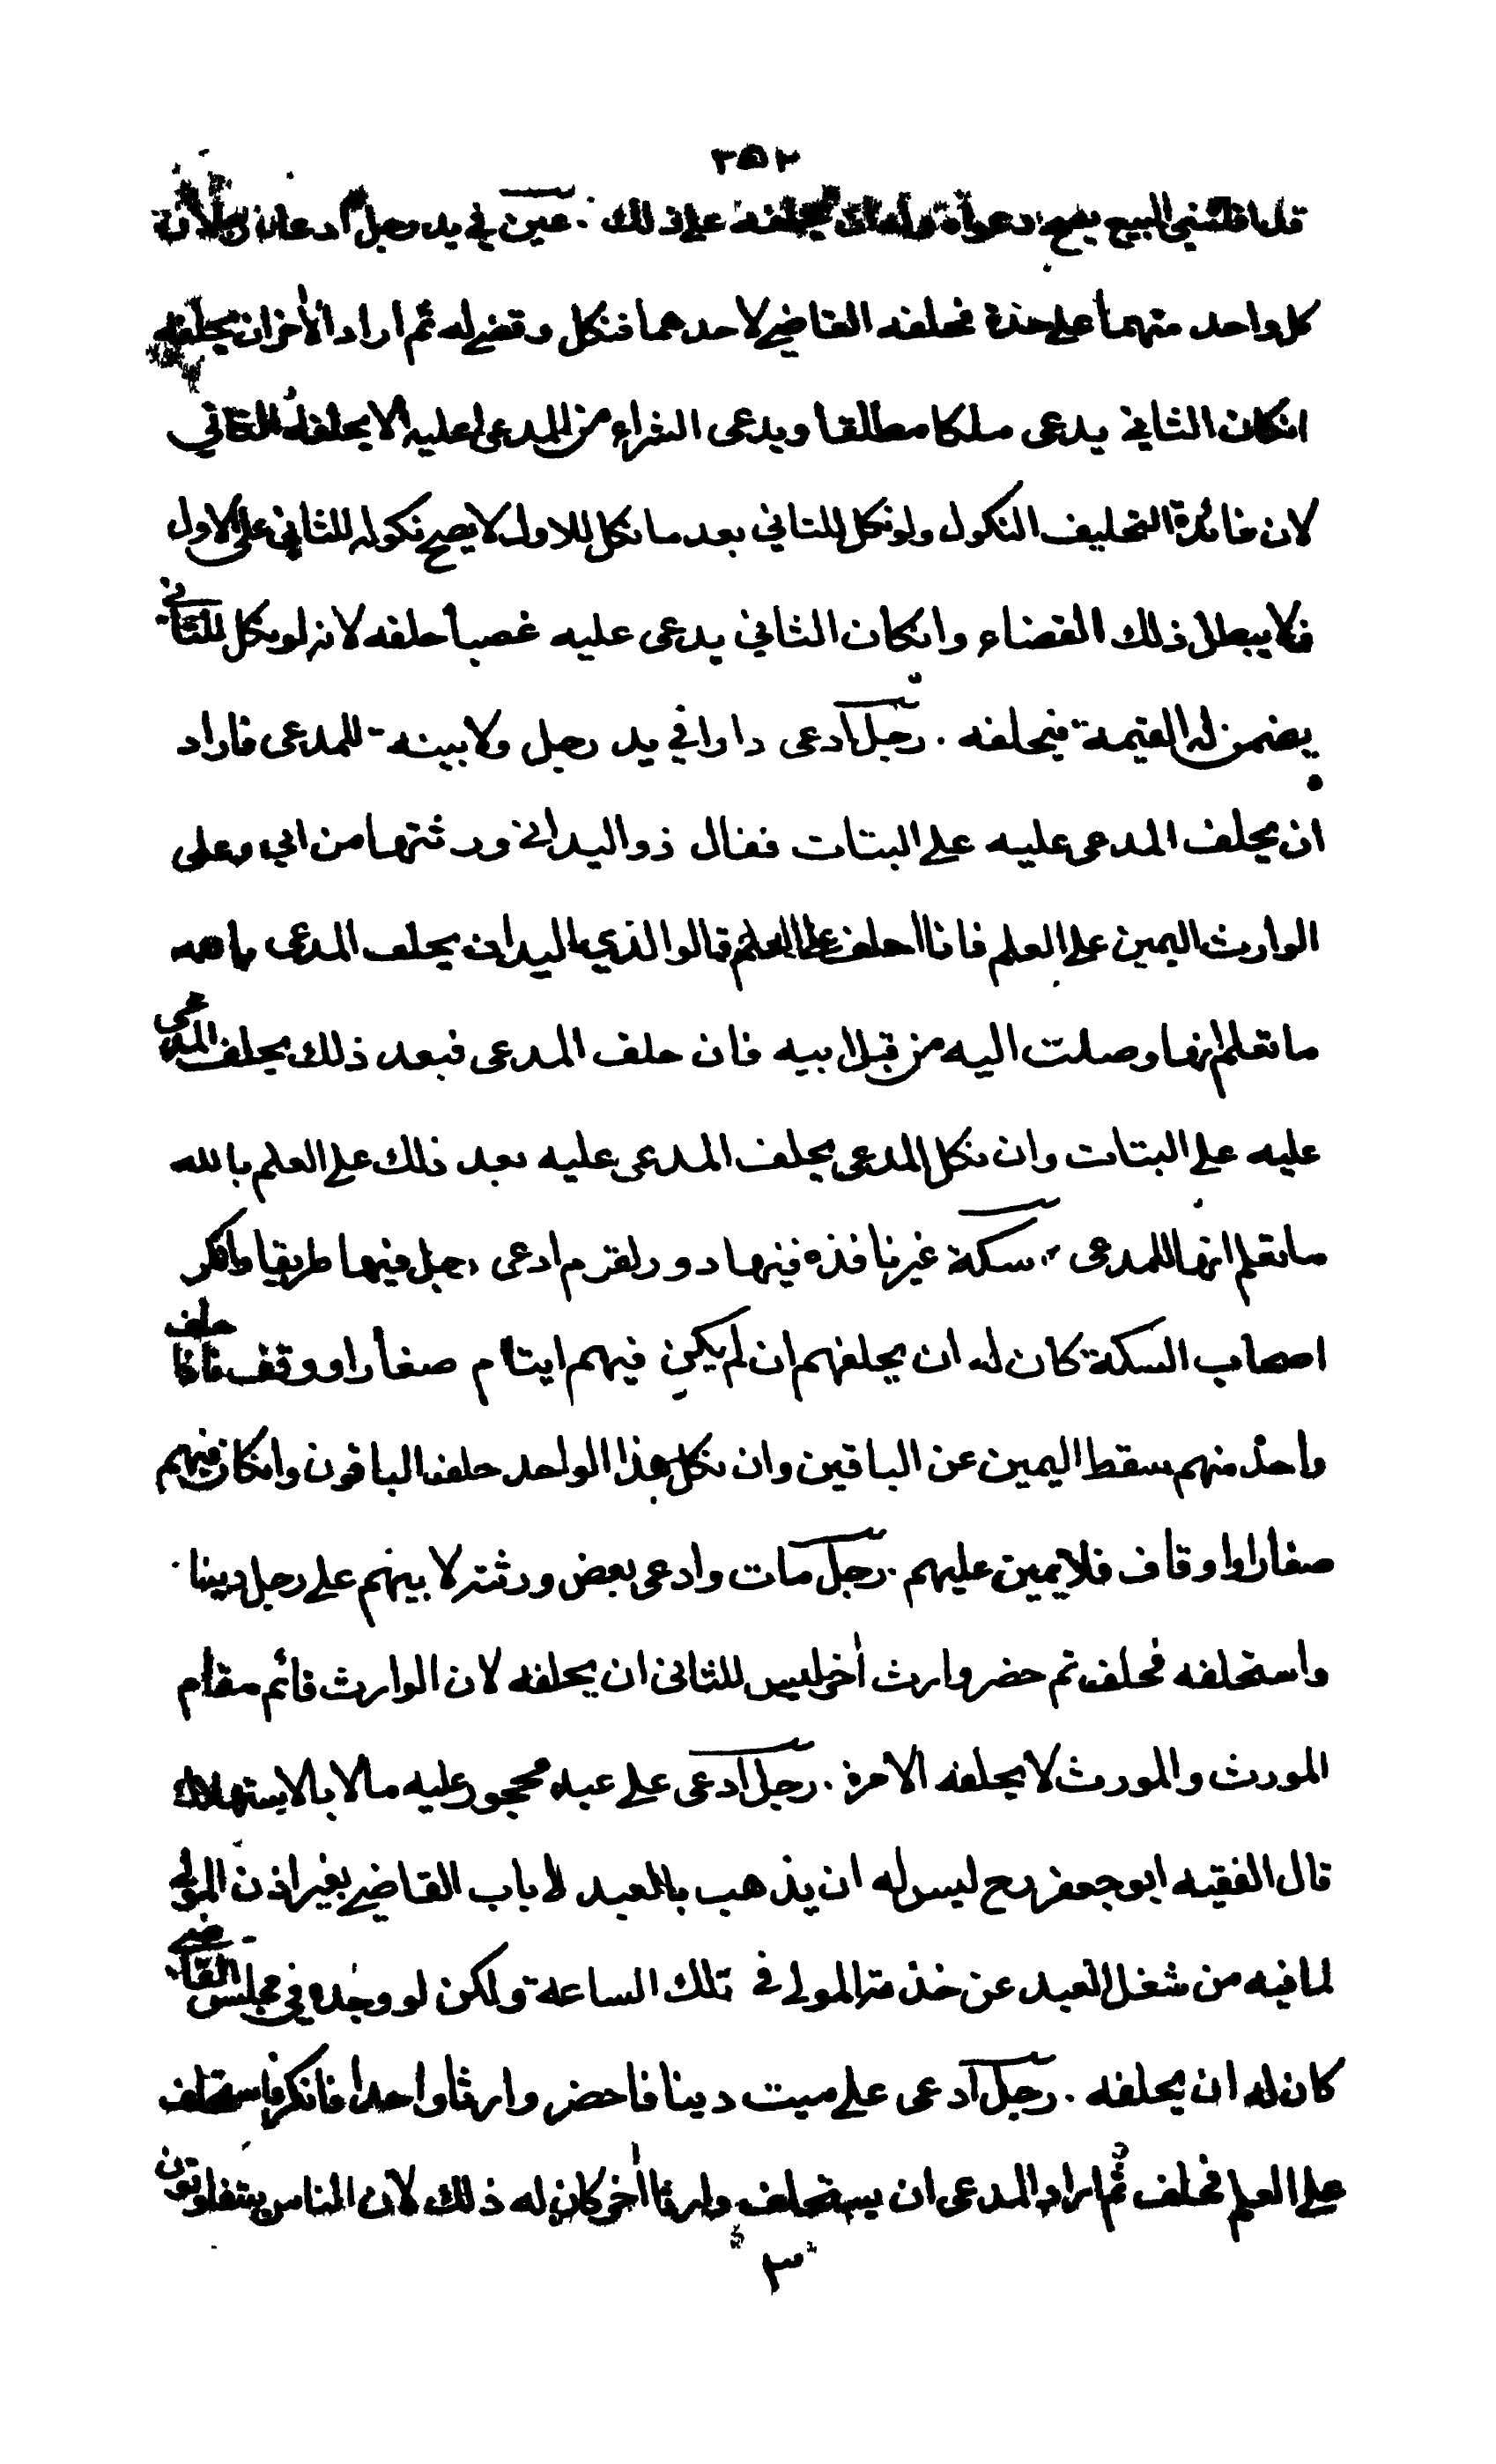 ٢٥٢
البيع يصح دعواه وله ان يحلفه على ذلك . عين في يد رجل ادعاه رجلان
كل واحد منهما على حدة فحلفه القاضي لاحدهما فنكل وقضى له ثم اراد الاخر ان يحلفه
انكان الثاني يدعى ملكا مطلقا ويدعى الشراء من المدعى عليه لا يحلفه القاضي
لان فائدة التحليف النكول ولو نكل للثاني بعد ما نكل للاول لا يصح نكوله للثاني على الاول
فلا يبطل ذلك القضاء وانكان الثاني يدعى عليه غصبا حلفه لانه لو نكل للثاني
يضمن له القيمة فيحلفه . رجل ادعى دارا في يد رجل ولا بينة للمدعى فاراد
ان يحلف المدعى عليه على البتات فقال ذو اليد انى ورثتها من ابى وعلى
الوارث اليمين على العلم فانا احلف على العلم قالوا لذي اليد ان يحلف المدعى بالله
ما تعلم انها وصلت اليه من قبل ابيه فان حلف المدعى فبعد ذلك يحلف المدعى
عليه على البتات وان نكل المدعى يحلف المدعى عليه بعد ذلك على العلم بالله
ما تعلم انها للمدعى . سكة غير نافذه فيها دور لقوم ادعى رجل فيها طريقا وانكر
اصحاب السكة كان له ان يحلفهم ان لم يكن فيهم ايتام صغارا او وقف فاذا حلف
واحد منهم سقط اليمين عن الباقين وان نكل هذا الواحد حلف الباقون وانكان فيهم
صغارا او اوقاف فلا يمين عليهم . رجل مات وادعى بعض ورثته لابيهم على رجل دينا
واستحلفه فحلف ثم حضر وارث اخر ليس للثانى ان يحلفه لان الوارث قائم مقام
المورث والمورث لا يحلفه الا مرة . رجل ادعى على عبد محجور عليه مالا بالاستهلاك
قال الفقيه ابو جعفر رح ليس له ان يذهب بالعبد لا باب القاضي بغير اذن المولى
لما فيه من شغل العبد عن خدمة المولى في تلك الساعة ولكن لو وجده في مجلس القاضي
كان له ان يحلفه . رجل ادعى على ميت دينا فاحضر وارثا واحدا فانكر فاستحلف
على العلم فحلف ثم اراد المدعى ان يستحلف وارثا اخر كان له ذلك لان الناس يتفاوتون
٣